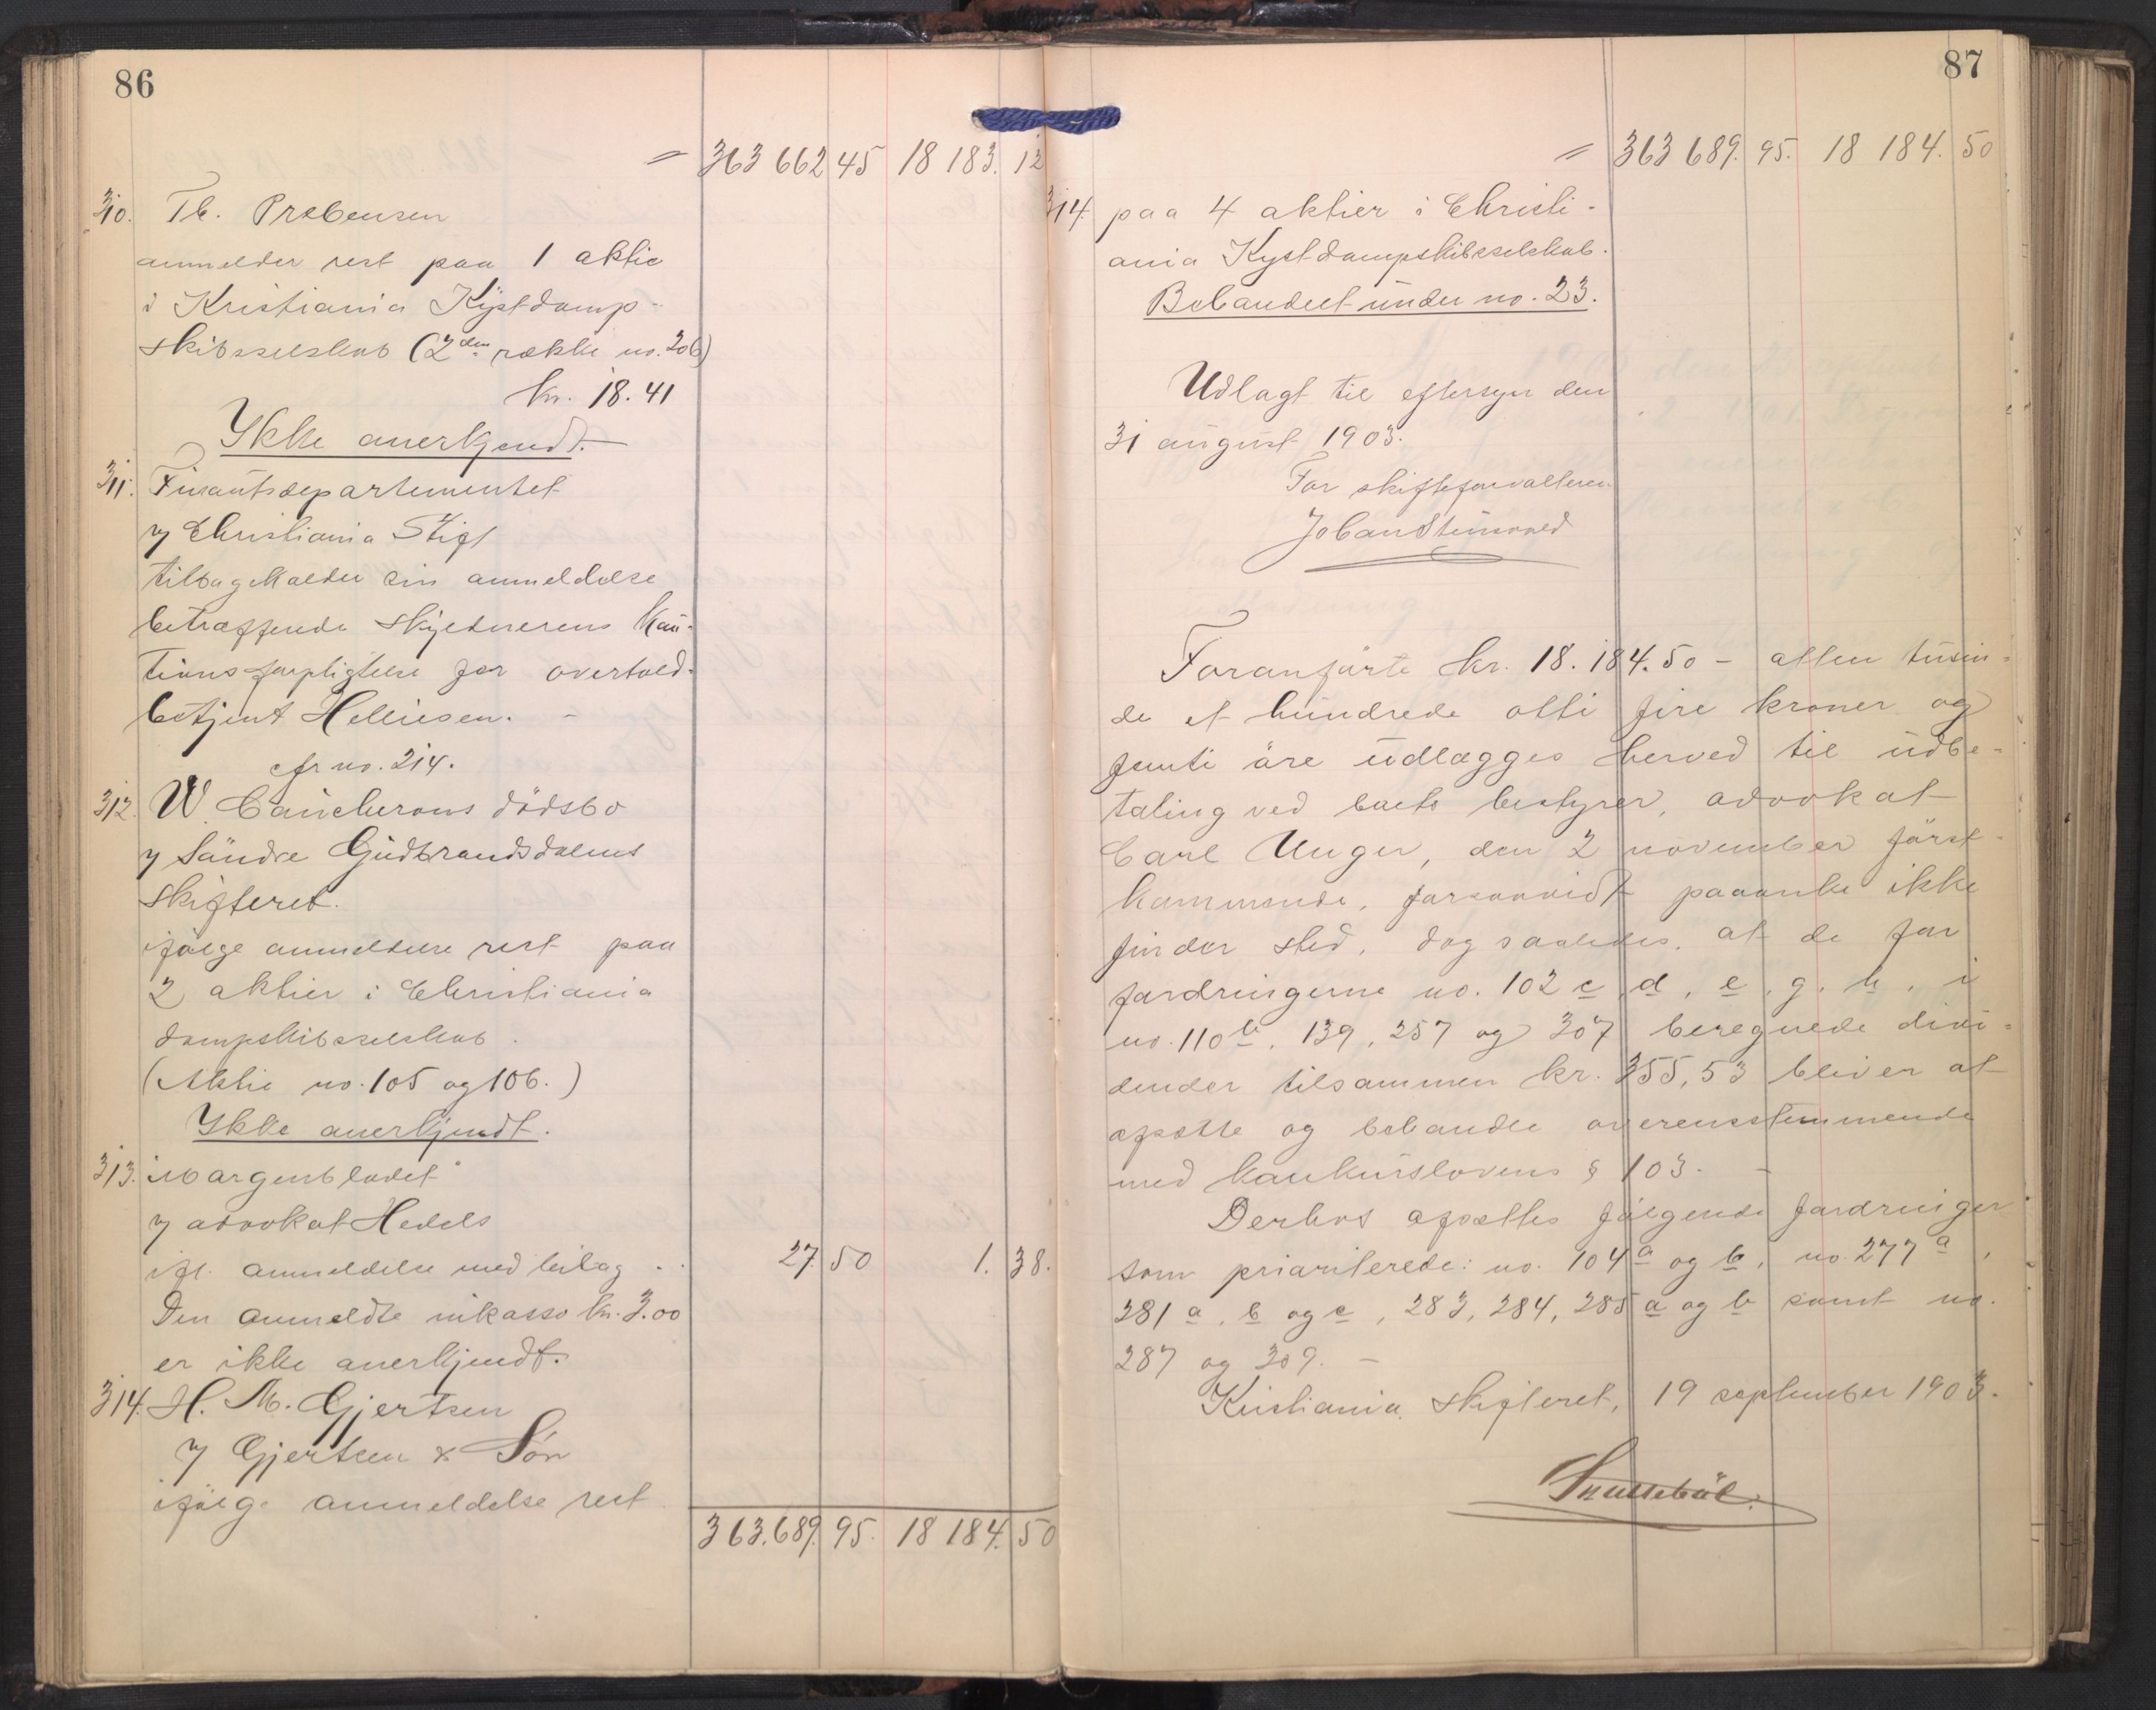 86
= 363 662 45 18 183. 12
310. Th. Prebensen
anmelder rest paa 1 aktie
i Kristiania Kystdamp-
skibsselskab (2den række no. 206)
kr. 18.41
Ikke anerkjendt.
311. Finantsdepartementet
v/ Christiania Stift
tilbagekalder sin anmeldelse
betræffende skyldnerens kau-
tionsforpligtelse for overtold-
betjent Helliesen. -
cfr no. 214.
312. W. dödsbo
v/ Söndre Gudbrandsdalens
skifteret.
ifølge anmeldelse rest paa
2 aktier i Christiania
dampskibsselskab.
(Aktie no. 105 og 106.)
Ikke anerkjendt.
313. "Morgenbladet"
v/ advokat Hedels
ifl. anmeldelse med bilag . . 27. 50 1. 38.
Den anmeldte inkasso kr. 3.00
er ikke anerkjendt.
314. H. M. Gjertsen
v/ Gjertsen & Søn
ifølge anmeldelse rest
363.689. 95. 18 184. 50
87
= 363 689. 95. 18 184. 50
314. paa 4 aktier i Christi-
ania Kystdampskibsselskab.
Behandlet under no. 23.
Udlagt til eftersyn den
31 august 1903.
For skifteforvalteren
Johan
Foranførte kr. 18.184.50 - atten tusin-
de et hundrede otti fire kroner og
femti øre udlægges herved til udbe-
taling ved boets bestyrer, advokat
Carl Unger, den 2 november først-
kommende, forsaavidt paaanke ikke
finder sted, dog saaledes, at de for
fordringerne no. 102 c, d, e, g, h, i
no. 110 b, 139, 257 og 307 beregnede divi-
dender tilsammen kr. 355,53 bliver at
afsætte og behandle overensstemmende
med konkurslovens § 103. -
Derhos afsættes følgende fordringer
som prioriterede: no. 104 a og b, no. 277 a,
281 a, b og c, 283, 284, 285 a og b samt no.
287 og 309. -
Kristiania skifteret, 19 september 1903.